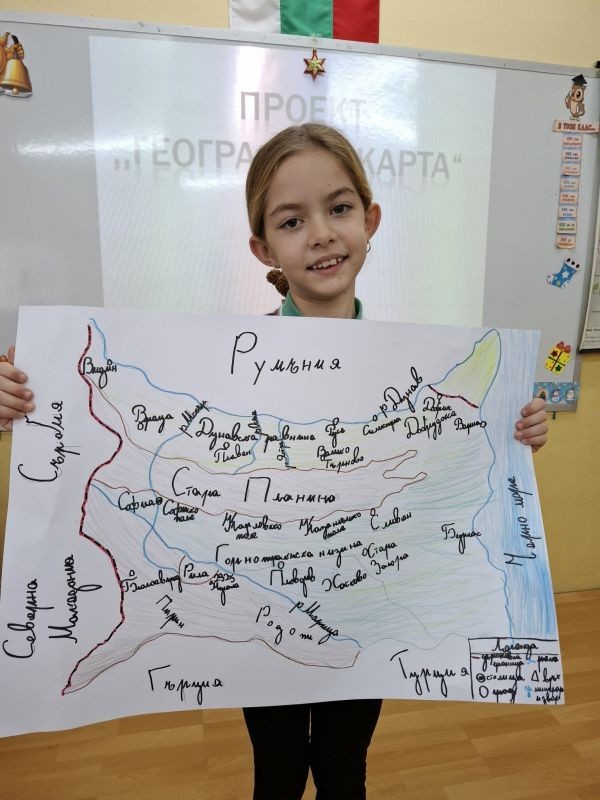 ПРОЕКТ
„ГЕОГРА КАРТА“
В ТОЗИ КЛАС...
Румъния
Сърбия
Северна
Македония
Гърция
Турция
Черно море
Видин
Враца
р. Дунав
Дунавска равнина
Плевен
Русе
Силистра
Добрич
Добруджа
Варна
Велико
Търново
Стара Планина
София
Софийско
поле
Карловско
поле
Казанлъшко
поле
Сливен
Бургас
Горнотракийска низина
Стара
Загора
Благоевград
Рила
Пловдив
Хасково
Пирин
Родопи
р. Марица
Легенда
държавна
граница
столица
град
връх